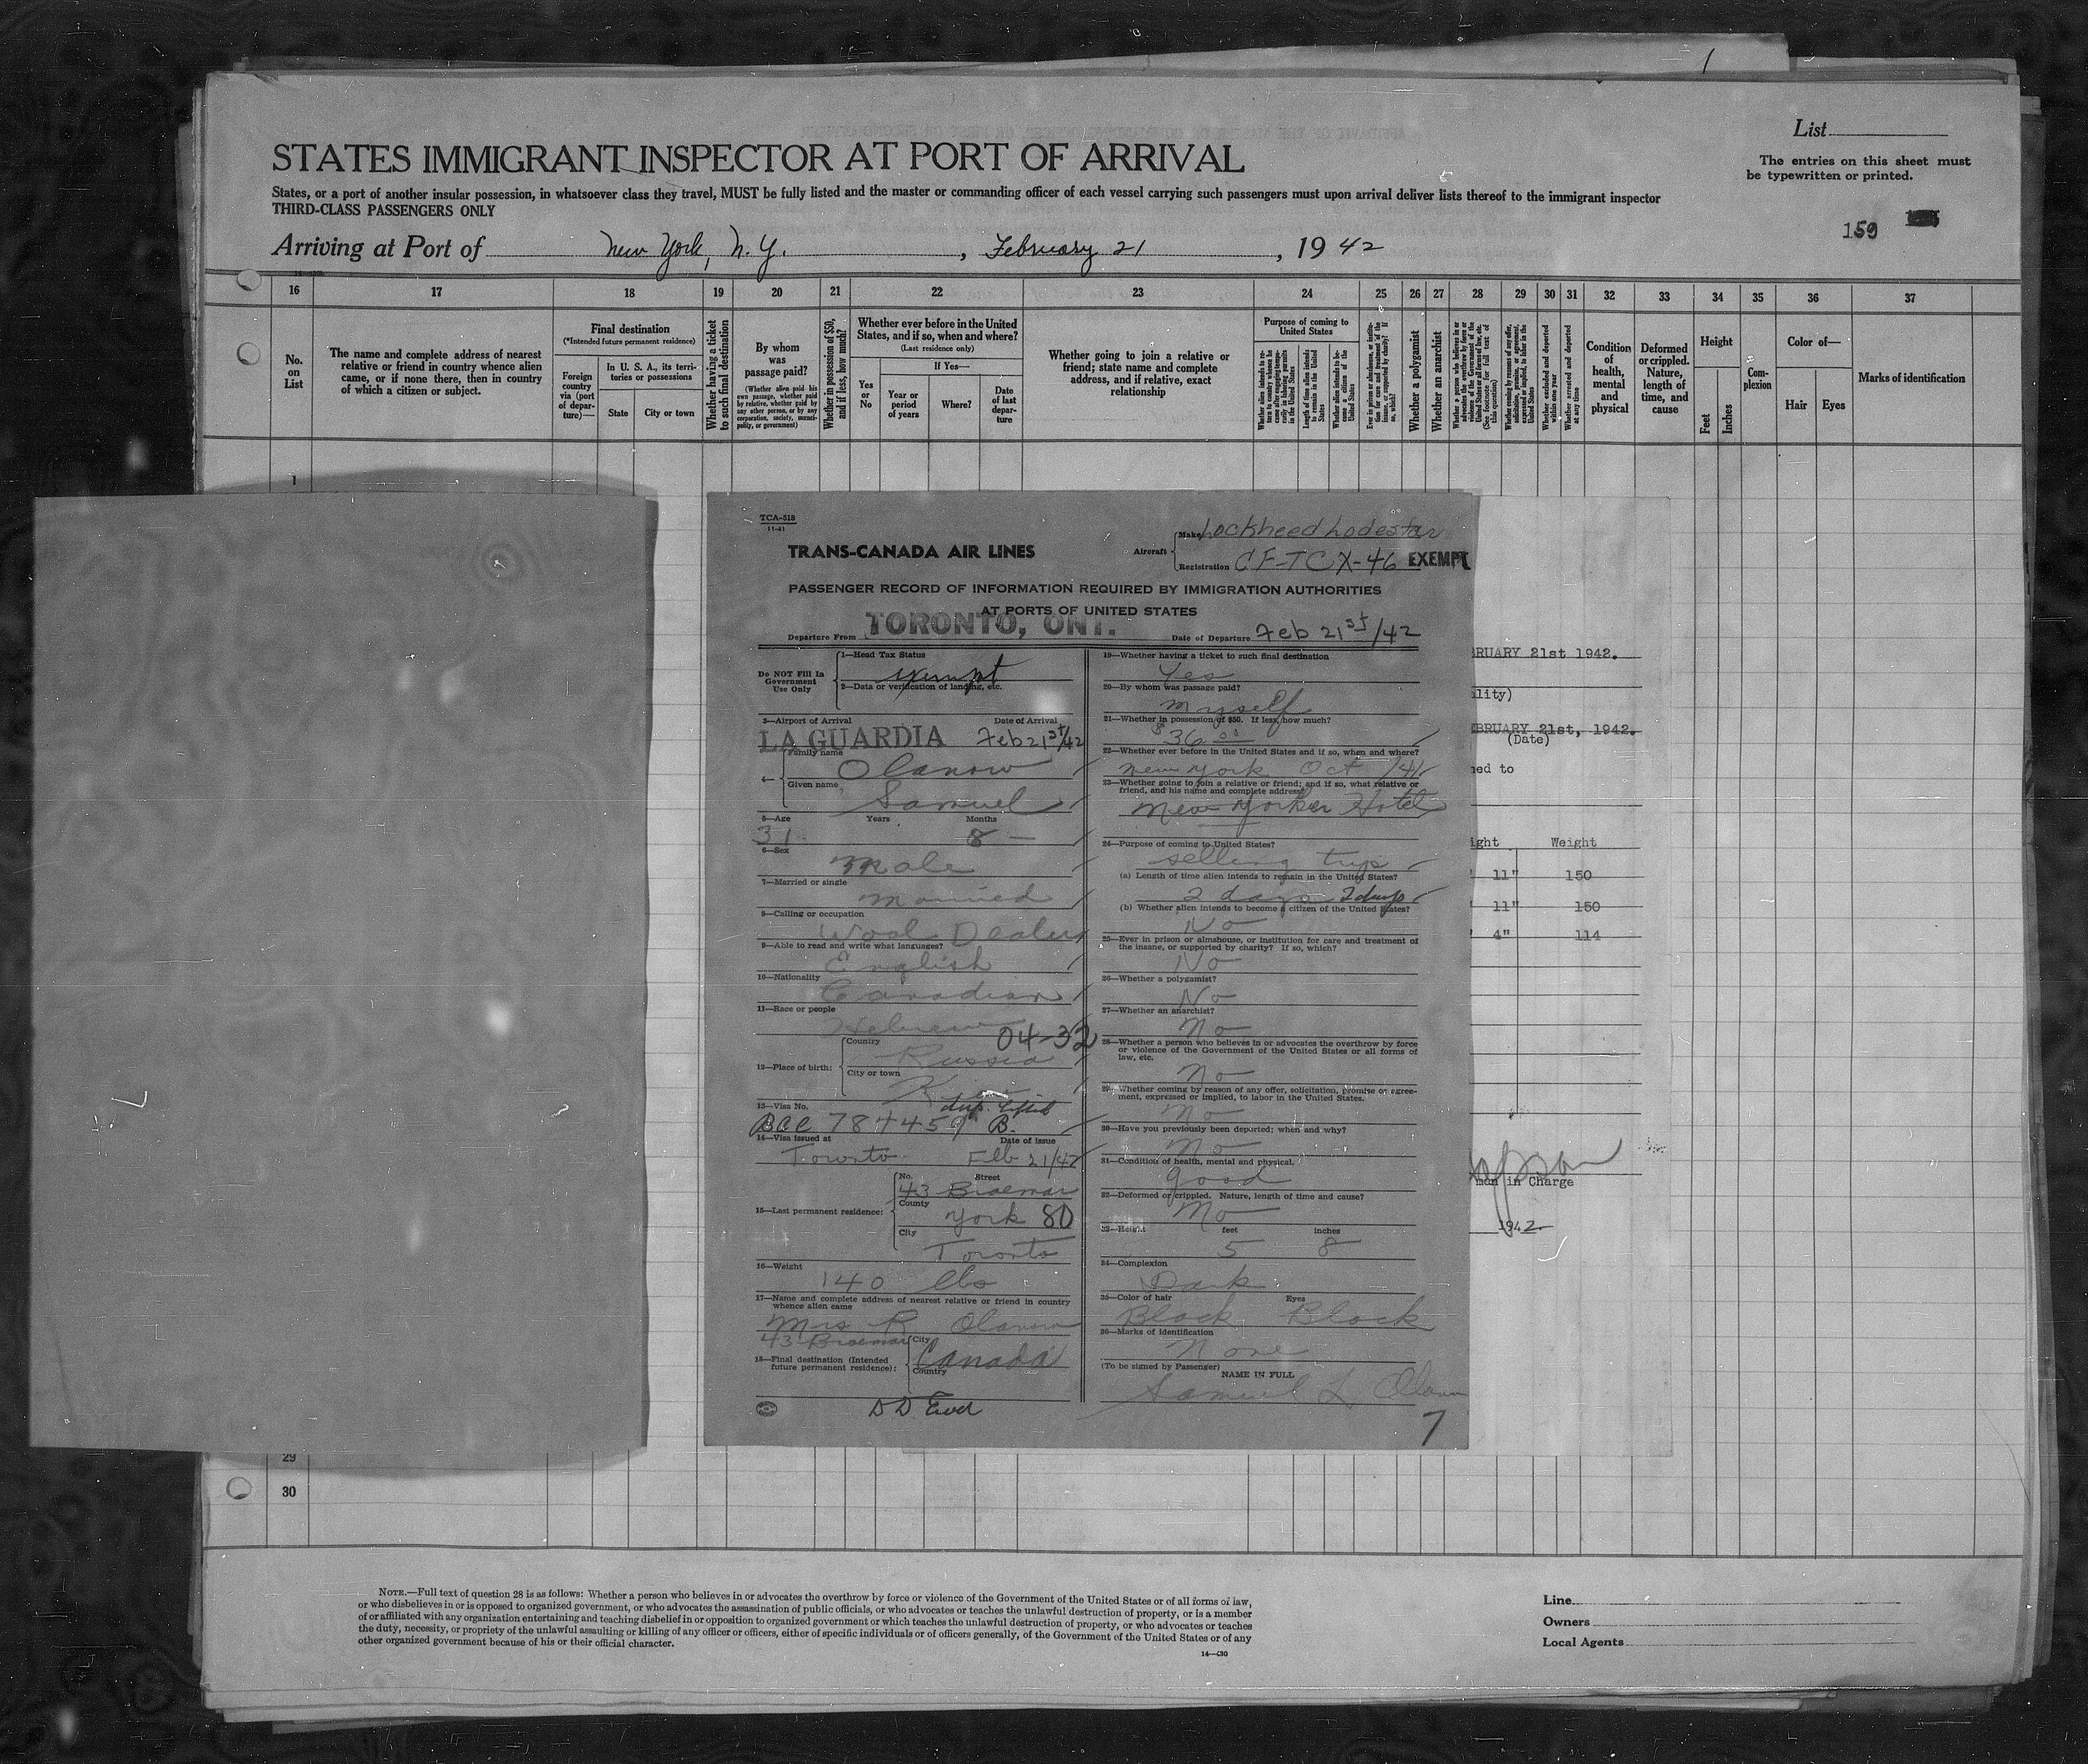 1
List
The entries on this sheet must
be typewritten or printed.
STATES IMMIGRANT INSPECTOR AT PORT OF ARRIVAL
States, or a port of another insular possession, in whatsoever class they travel, MUST be fully listed and the master or commanding officer of each vessel carrying such passengers must upon arrival deliver lists thereof to the immigrant inspector
THIRD-CLASS PASSENGERS ONLY
159
Arriving at Port of New York, N.Y., February 21, 1942
16 17 18 19 20 21 22 23 24 25 26 27 28 29 30 31 32 33 34 35 36 37
No. on List
The name and complete address of nearest
relative or friend in country whence alien
came, or if none there, then in country
of which a citizen or subject.
Final destination
(*Intended future permanent residence)
Foreign country via (port of departure)—
In U. S. A., its territories or possessions
State
City or town
Whether having a ticket to such final destination
By whom was passage paid?
(Whether alien paid his own passage, whether paid by relative, whether paid by any other person, or by any corporation, society, municipality, or government)
Whether in possession of $50, and if less, how much?
Whether ever before in the United
States, and if so, when and where?
(Last residence only)
Yes or No
If Yes—
Year or period of years
Where?
Date of last departure
Whether going to join a relative or
friend; state name and complete
address, and if relative, exact
relationship
Purpose of coming to
United States
Length of time alien intends to remain in the United States
Whether alien intends to become a citizen of the United States
Whether a polygamist
Whether an anarchist
Whether excluded and deported within one year
Whether arrested and deported at any time
Condition of health, mental and physical
Deformed or crippled. Nature, length of time, and cause
Height
Feet
Inches
Complexion
Color of—
Hair
Eyes
Marks of identification
1
TCA-518
11-41
TRANS-CANADA AIR LINES
Aircraft
Make Lockheed Lodestar
Registration CF-TCX-46 EXEMPT
PASSENGER RECORD OF INFORMATION REQUIRED BY IMMIGRATION AUTHORITIES
AT PORTS OF UNITED STATES
Departure From TORONTO, ONT. Date of Departure Feb 21st/42
Do NOT Fill In
Government
Use Only
1—Head Tax Status
exempt
2—Data or verification of landing, etc.
3—Airport of Arrival Date of Arrival
LA GUARDIA Feb 21st/42
4—
Family name
Olanow
Given name
Samuel
5—Age Years Months
31 8 —
6—Sex
Male
7—Married or single
Married
8—Calling or occupation
Wool Dealer
9—Able to read and write what languages?
English
10—Nationality
Canadian
11—Race or people
Hebrew 04-32
12—Place of birth:
Country
Russia
City or town
Kiev
13—Visa No.
BCC 784459 B.
14—Visa issued at Date of issue
Toronto Feb 21/42
15—Last permanent residence:
No. Street
43 Braemar
County
York 80
City
Toronto
16—Weight
140 lbs
17—Name and complete address of nearest relative or friend in country
whence alien came
Mrs R Olanow
43 Braemar
18—Final destination (Intended
future permanent residence):
City
Canada
Country
19—Whether having a ticket to such final destination
Yes
20—By whom was passage paid?
myself
21—Whether in possession of $50. If less, how much?
$36.00
22—Whether ever before in the United States and if so, when and where?
New York Oct /41
23—Whether going to join a relative or friend; and if so, what relative or
friend, and his name and complete address?
New Yorker Hotel
24—Purpose of coming to United States?
selling trip
(a) Length of time alien intends to remain in the United States?
2 days 2 days
(b) Whether alien intends to become a citizen of the United States?
No
25—Ever in prison or almshouse, or institution for care and treatment of
the insane, or supported by charity? If so, which?
No
26—Whether a polygamist?
No
27—Whether an anarchist?
No
28—Whether a person who believes in or advocates the overthrow by force
or violence of the Government of the United States or all forms of
law, etc.
No
29—Whether coming by reason of any offer, solicitation, promise or agree-
ment, expressed or implied, to labor in the United States.
No
30—Have you previously been deported; when and why?
No
31—Condition of health, mental and physical.
good
32—Deformed or crippled. Nature, length of time and cause?
No
33—Height feet inches
5 8
34—Complexion
Dark
35—Color of hair Eyes
Black Black
36—Marks of identification
None
(To be signed by Passenger)
NAME IN FULL
Samuel L Olanow
7
BRUARY 21st 1942.
lity)
EBRUARY 21st, 1942.
(Date)
ned to
ight Weight
11" 150
11" 150
4" 114
man in Charge
1942
29
30
NOTE.—Full text of question 28 is as follows: Whether a person who believes in or advocates the overthrow by force or violence of the Government of the United States or of all forms of law,
or who disbelieves in or is opposed to organized government, or who advocates the assassination of public officials, or who advocates or teaches the unlawful destruction of property, or is a member
of or affiliated with any organization entertaining and teaching disbelief in or opposition to organized government or which teaches the unlawful destruction of property, or who advocates or teaches
the duty, necessity, or propriety of the unlawful assaulting or killing of any officer or officers, either of specific individuals or of officers generally, of the Government of the United States or of any
other organized government because of his or their official character.
14—430
Line
Owners
Local Agents